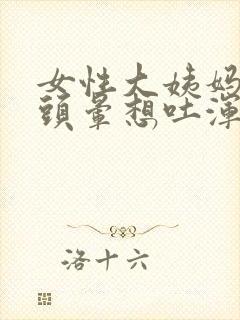 女性大姨妈
頭暈想吐渾
洛十六